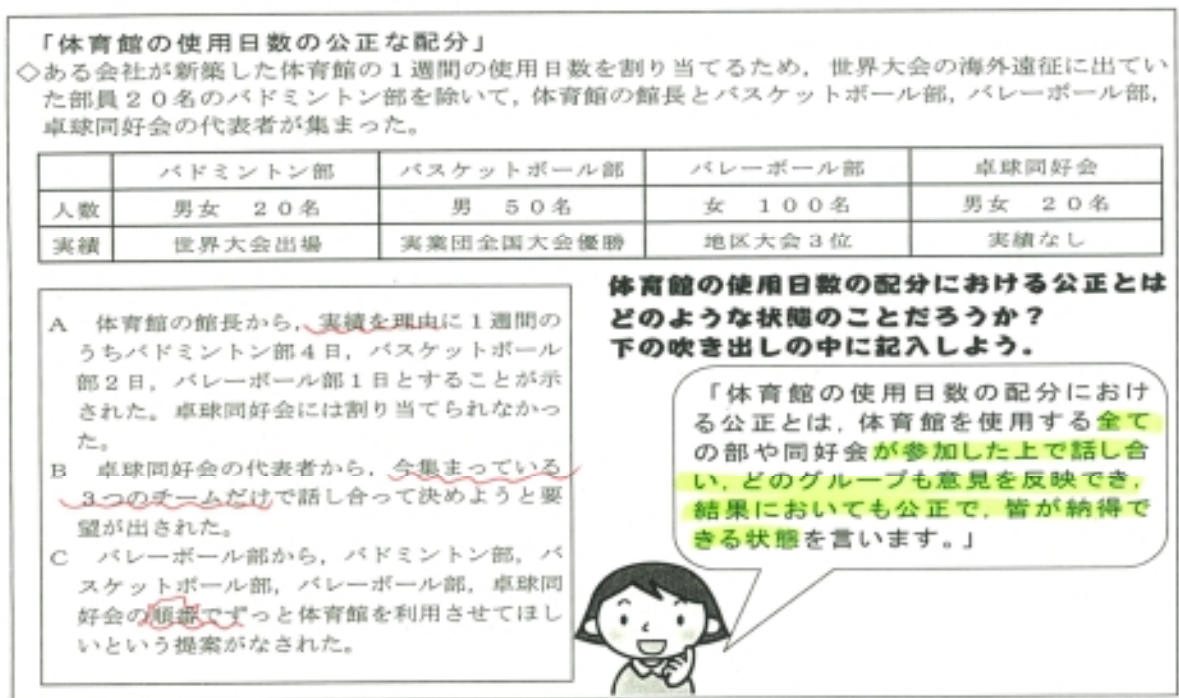 「体育館の使用日数の公正な配分」
◇ある会社が新築した体育館の1週間の使用日数を割り当てるため，世界大会の海外遠征に出てい
た部員20名のバドミントン部を除いて，体育館の館長とバスケットボール部，バレーボール部，
卓球同好会の代表者が集まった。
バドミントン部 バスケットボール部 バレーボール部 卓球同好会
人数 男女 20名 男 50名 女 100名 男女 20名
実績 世界大会出場 実業団全国大会優勝 地区大会3位 実績なし
A 体育館の館長から，実績を理由に1週間の
うちバドミントン部4日，バスケットボール
部2日，バレーボール部1日とすることが示
された。卓球同好会には割り当てられなかっ
た。
B 卓球同好会の代表者から，今集まっている
3つのチームだけで話し合って決めようと要
望が出された。
C バレーボール部から，バドミントン部，バ
スケットボール部，バレーボール部，卓球同
好会の順番でずっと体育館を利用させてほし
いという提案がなされた。
体育館の使用日数の配分における公正とは
どのような状態のことだろうか？
下の吹き出しの中に記入しよう．
「体育館の使用日数の配分におけ
る公正とは，体育館を使用する全て
の部や同好会が参加した上で話し合
い，どのグループも意見を反映でき，
結果においても公正で，皆が納得で
きる状態を言います。」